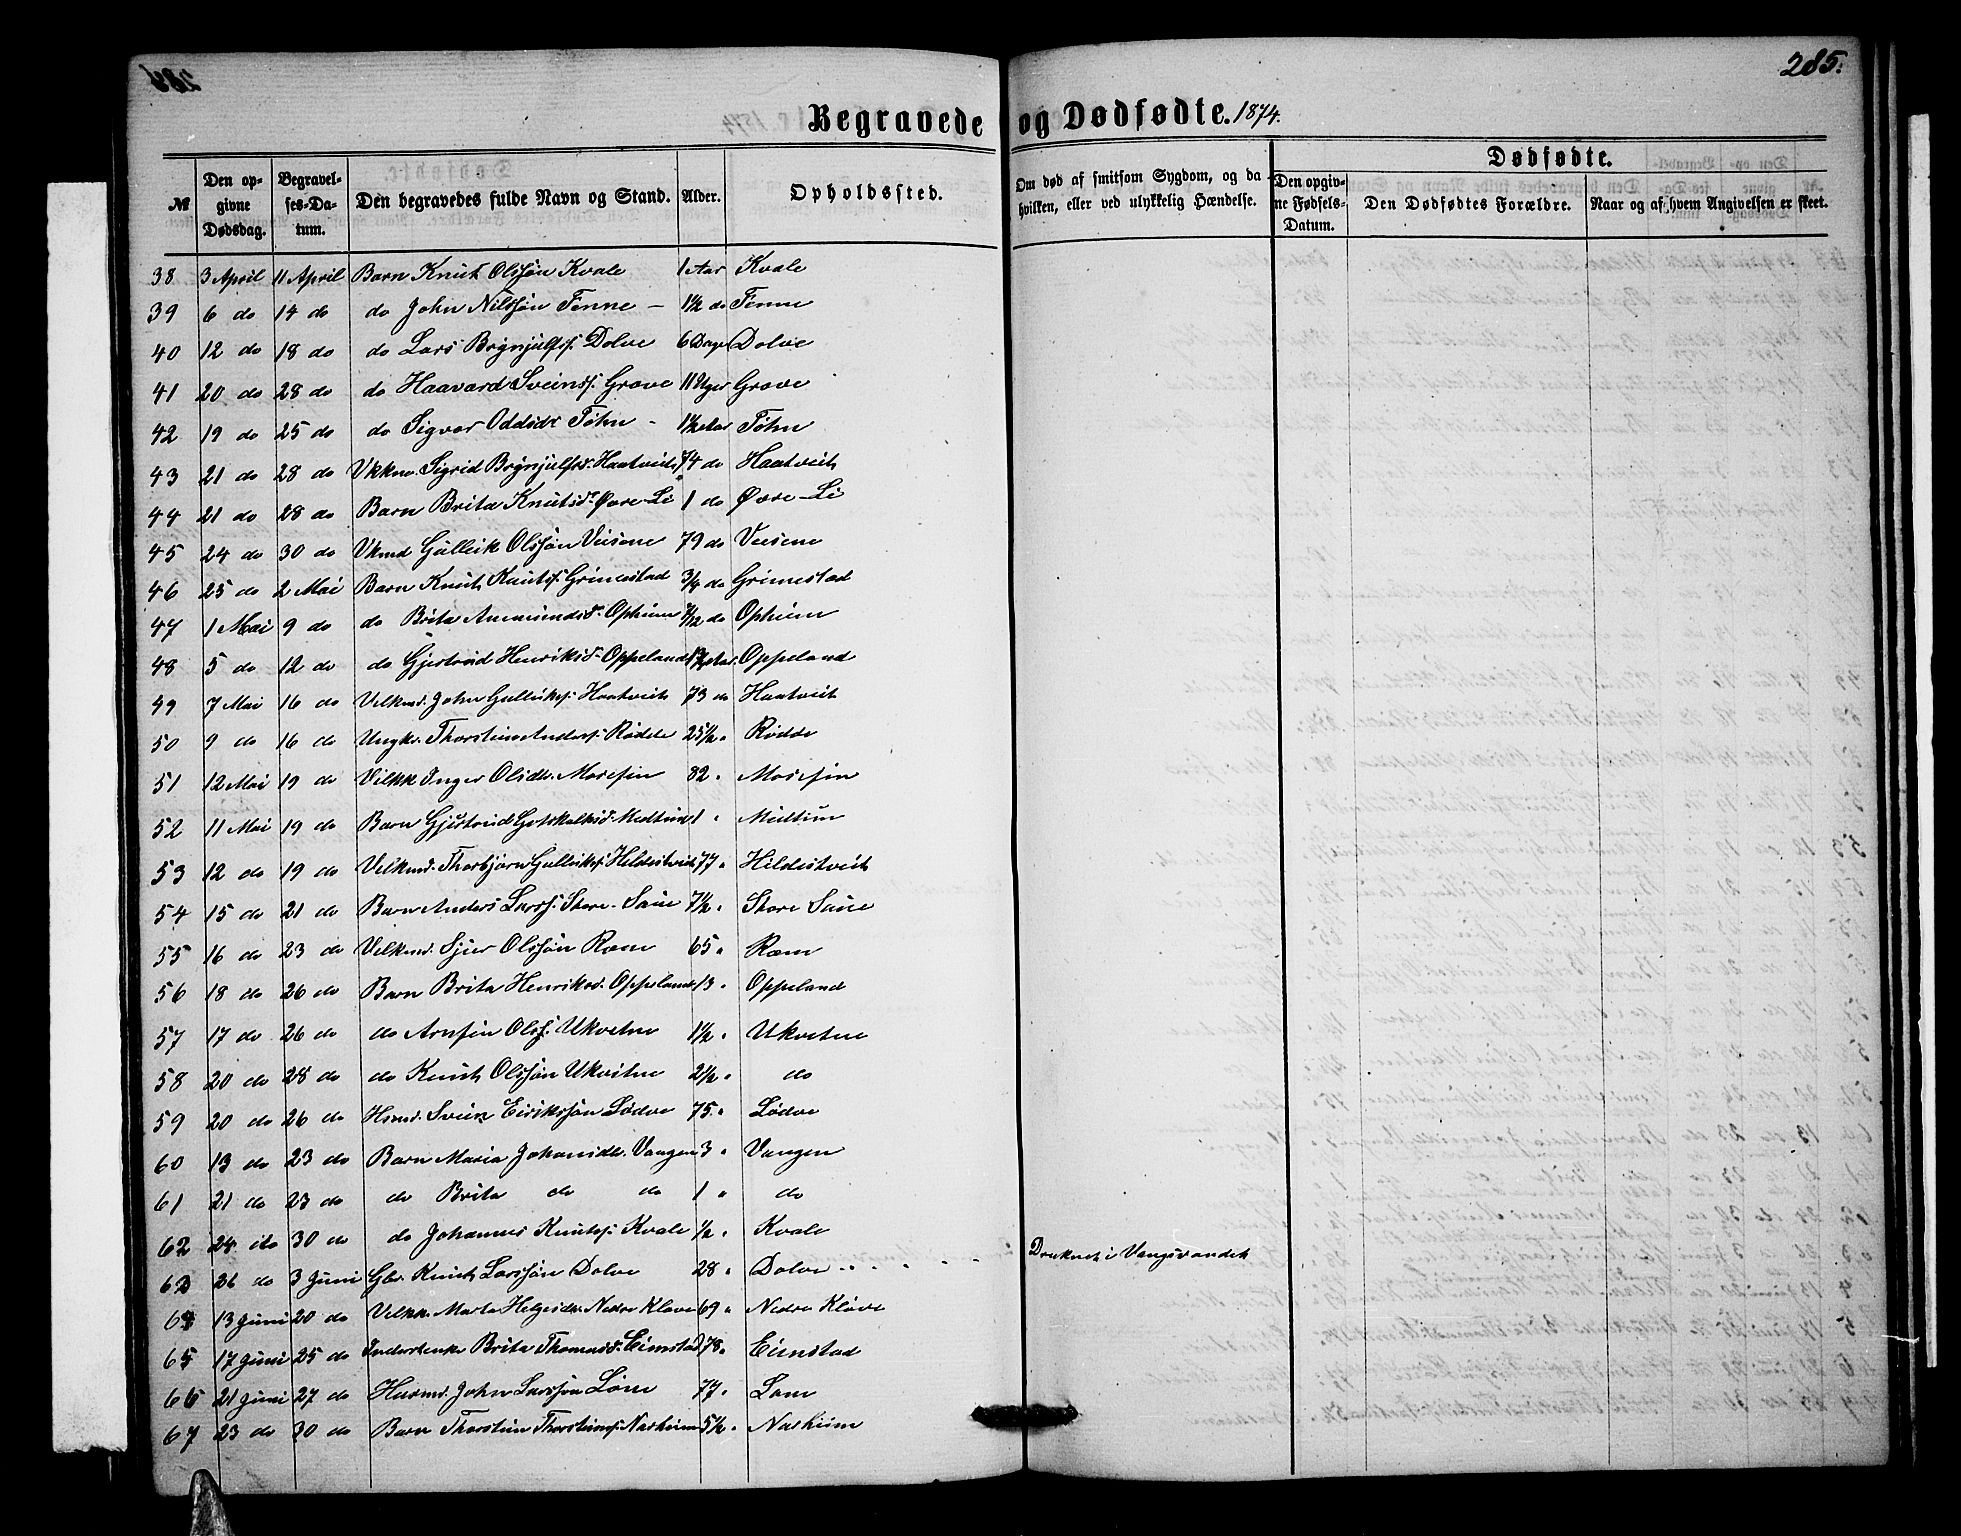 285.
Begravede og Dødfødte. 1874.
№ Den opgivne Dødsdag. Begravelses-Datum. Den begravedes fulde Navn og Stand. Alder. Opholdssted. Om død af smitsom Sygdom, og da hvilken, eller ved ulykkelig Hændelse. Dødfødte. Den opgivne Fødsels-Datum. Den Dødfødtes Forældre. Naar og af hvem Angivelsen er skeet.
38 3 April 11 April Barn Knut Olssøn Kvale 1 Aar Kvale
39 6 do 14 do do John Nilssøn Finne – 1½ do Finne
40 12 do 18 do do Lars Brynjulfss. Dolve 6 Dage Dolve
41 20 do 28 do do Haavard Sveinss. Grove 11 Uger Grove
42 19 do 25 do do Sigvor Oddsdr Tøhn - 1½ Aar Tøhn
43 21 do 28 do Vkkm. Sigrid Brynjulfsd. Haatveit 74 do Haatveit
44 21 do 28 do Barn Brita Knutsd. Øvre-Li 1 do Øvre-Li
45 24 do 30 do Vkmd Gullеik Olssøn Veisene 79 do Veisene
46 25 do 2 Mai Barn Knut Knutss. Grimestad 3/4 do Grimestad
47 1 Mai 9 do do Brita Anmundsd. Opheim do Opheim
48 5 do 12 do do Gjertrud Henriksd. Oppeland Aar. Oppeland
49 7 Mai 16 do Velkmd. John Gulleikss. Haatveit 73 do Haatveit
50 9 do 16 do Ungkr. Thorstein Anderss. Rødde 25½ " Rødde
51 12 Mai 19 do Vilkk Inger Olsdr. Mosefin 82 " Mosefin
52 11 Mai 19 do Barn Gjertrud Gotskalksd. Midtun 1 " Midtun
53 12 do 19 do Velkmd. Thorbjørn Gulleikss. Hildestveit 77 " Hildestveit
54 15 do 21 do Barn Anders Larss. Store-Saue 7½ " Store Saue
55 16 do 23 do Velkmd. Sjur Olssøn Røm 65 " Røm
56 18 do 26 do Barn Brita Henriksd. Oppeland 13 " Oppeland
57 17 do 26 do do Arnfin Olss. Ukvitne 1½ " Ukvitne
58 20 do 28 do do Knut Olssøn Ukvitne 2½ " do
59 20 do 26 do Hsmd. Svein Eirikssøn Lødve 75 " Lødve
60 13 do 23 do Barn Maria Johansdr. Vangen 3 " Vangen
61 21 do 23 do do Brita do do 1 " do
62 24 do 30 do do Johannes Knutss. Kvale ½ " Kvale
63 26 do 3 Juni Gbr. Knut Larssøn Dolve 28 " Dolve Druknet i Vangsvandet
64 13 Juni 20 do Velkk. Marta Helgesdr. Nedre Kløve 69 " Nedre Kløve
65 17 Juni 25 do Inderstenke Brita Thomasd. Eimstad 78 " Eimstad
66 21 Juni 27 do Husmd. John Larssøn Løne 77 " Løne
67 23 do 30 do Barn Thorstein Thorsteinss. Nasheim 5½ " Nasheim